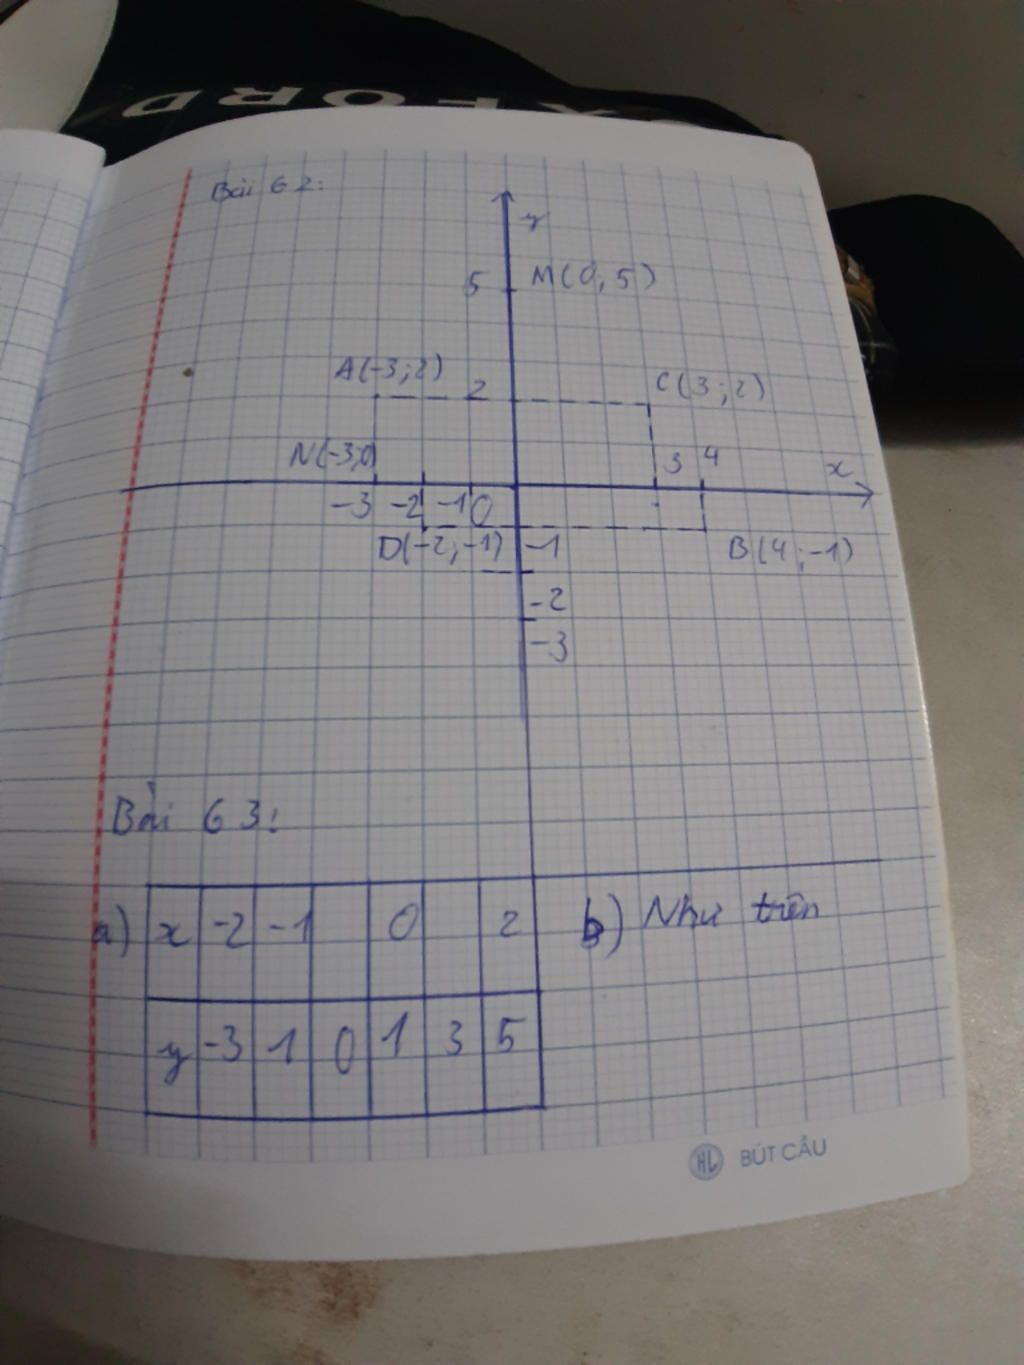 OXFORD
Bài 62:
y
5 M(0,5)
A(-3;2) 2 C(3;2)
N(-3;0 3 4 x
-3 -2 -1 0
D(-2;-1) -1 B(4;-1)
-2
-3
Bài 63:
a) x -2 -1 0 2 b) Như trên
y -3 1 0 1 3 5
HL BÚT CÂU